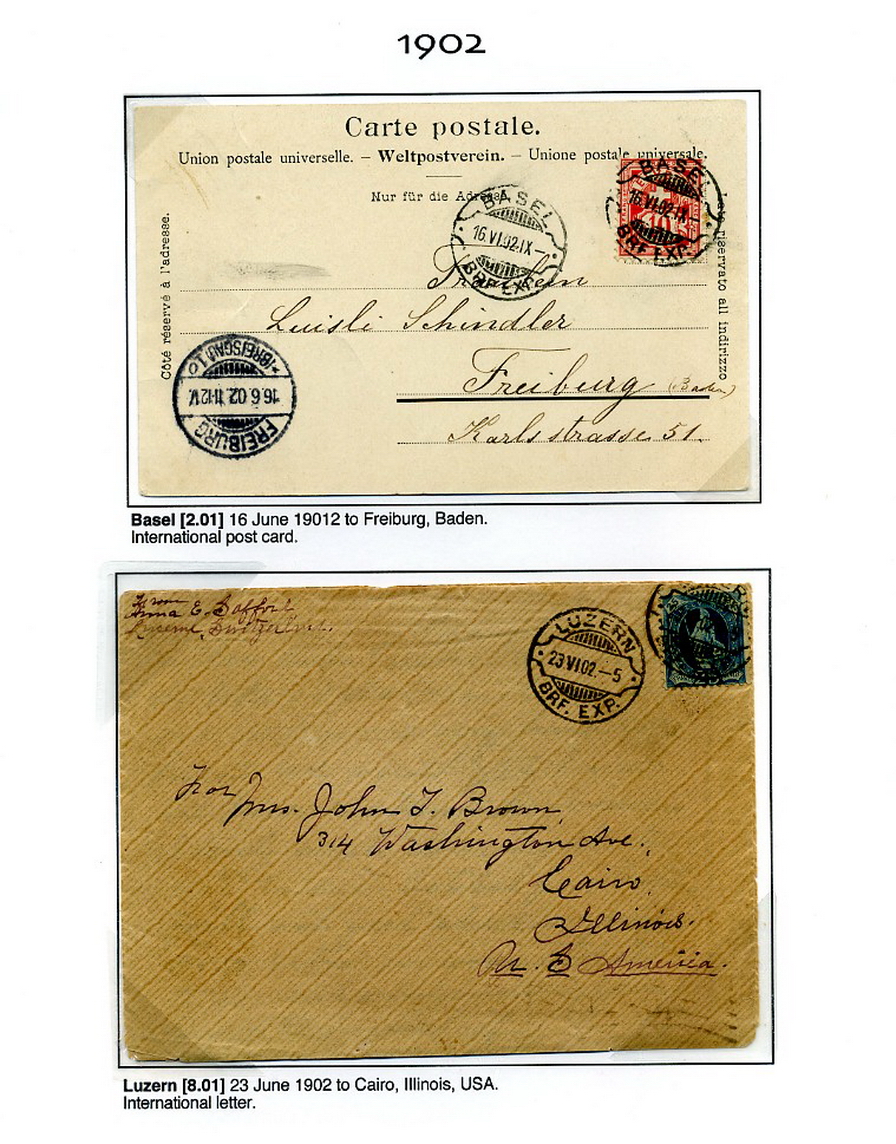 1902
Carte postale.
Union postale universelle. – Weltpostverein. – Unione postale universale.
Nur für die Adresse.
BASEL
16.VI.02.IX–
BRF. EXP.
BASEL
16.VI.02.IX–
BRF. EXP.
10
Côté réservé à l'adresse.
Lato riservato all indirizzo
Fräulein
Luisli Schindler
Freiburg (Baden)
Karlsstrasse 51.
FREIBURG
16.6.02.11-12V.
* (BREISGAU) 1 o
Basel [2.01] 16 June 19012 to Freiburg, Baden.
International post card.
From
Anna E. Safford
Lucerne, Switzerland.
LUZERN
23.VI.02.–5
BRF. EXP.
For Mrs. John T. Brown
314 Washington Ave.
Cairo,
Illinois.
U. S America.
Luzern [8.01] 23 June 1902 to Cairo, Illinois, USA.
International letter.